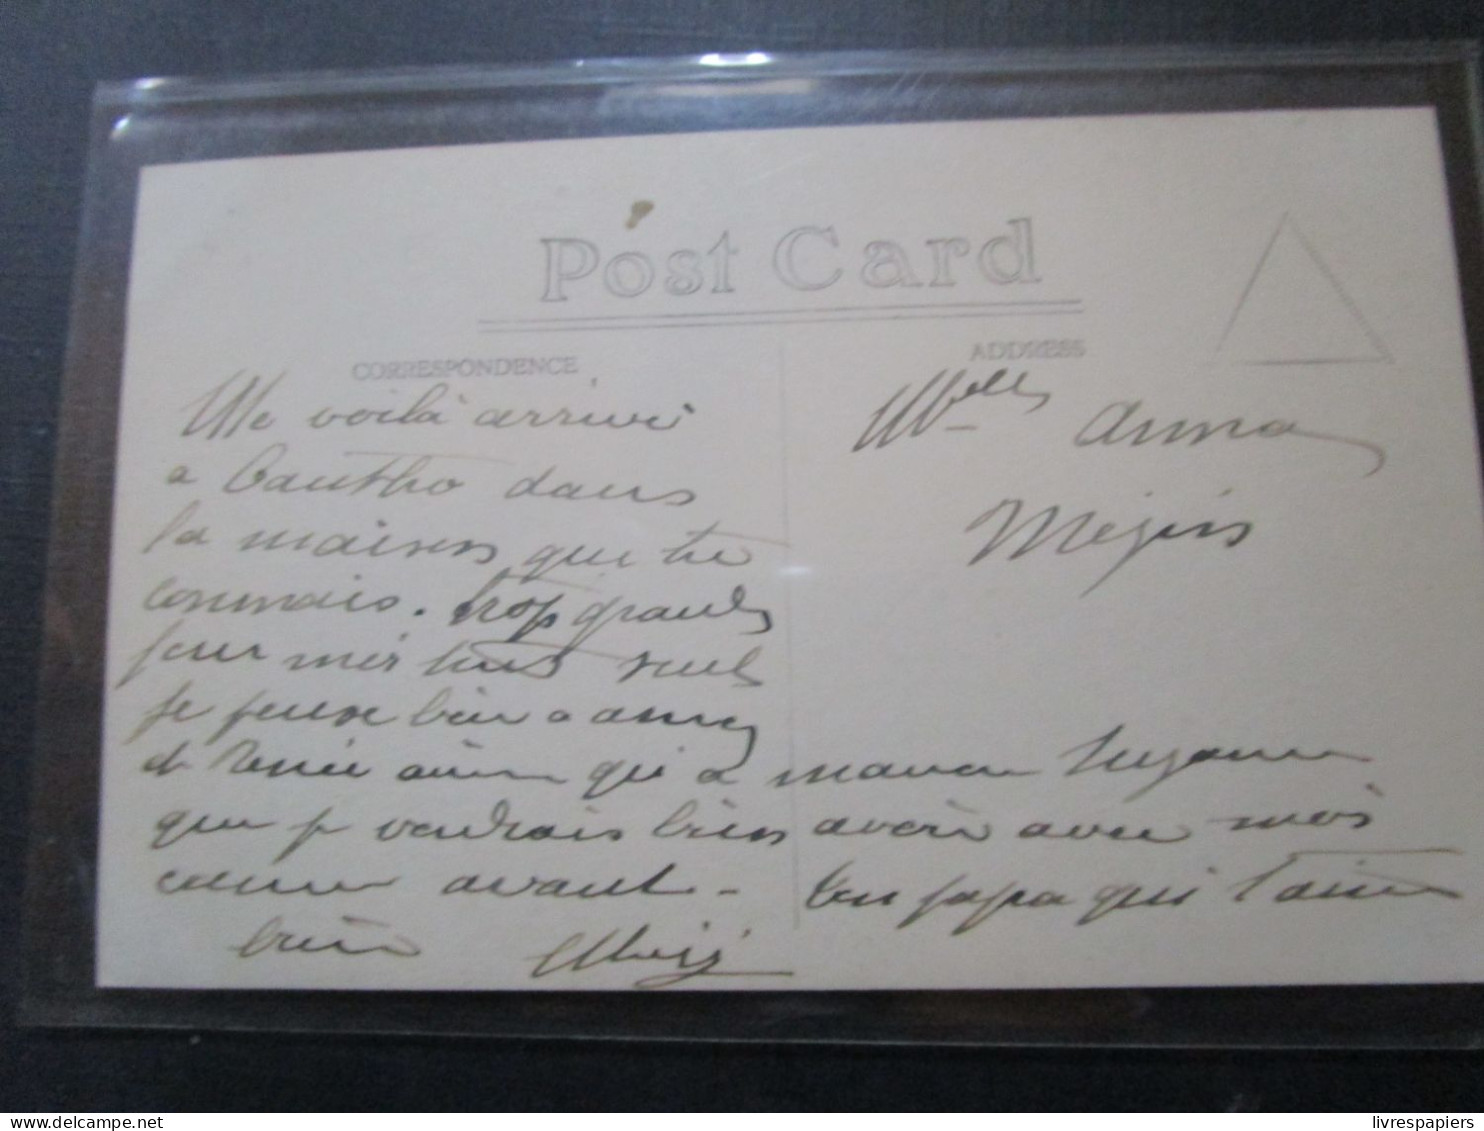 Post Card
CORRESPONDENCE
ADDRESS
Me voilà arrivé
a Cantho dans
la maison que tu
connais. trop grande
pour moi tout seul
je pense bien a anny
et Renée ainsi qu'a maman Suzanne
que je voudrais bien avoir avec moi
comme avant - ton papa qui t'aime
bien
Melle Anna
Mégis
livrespapiers